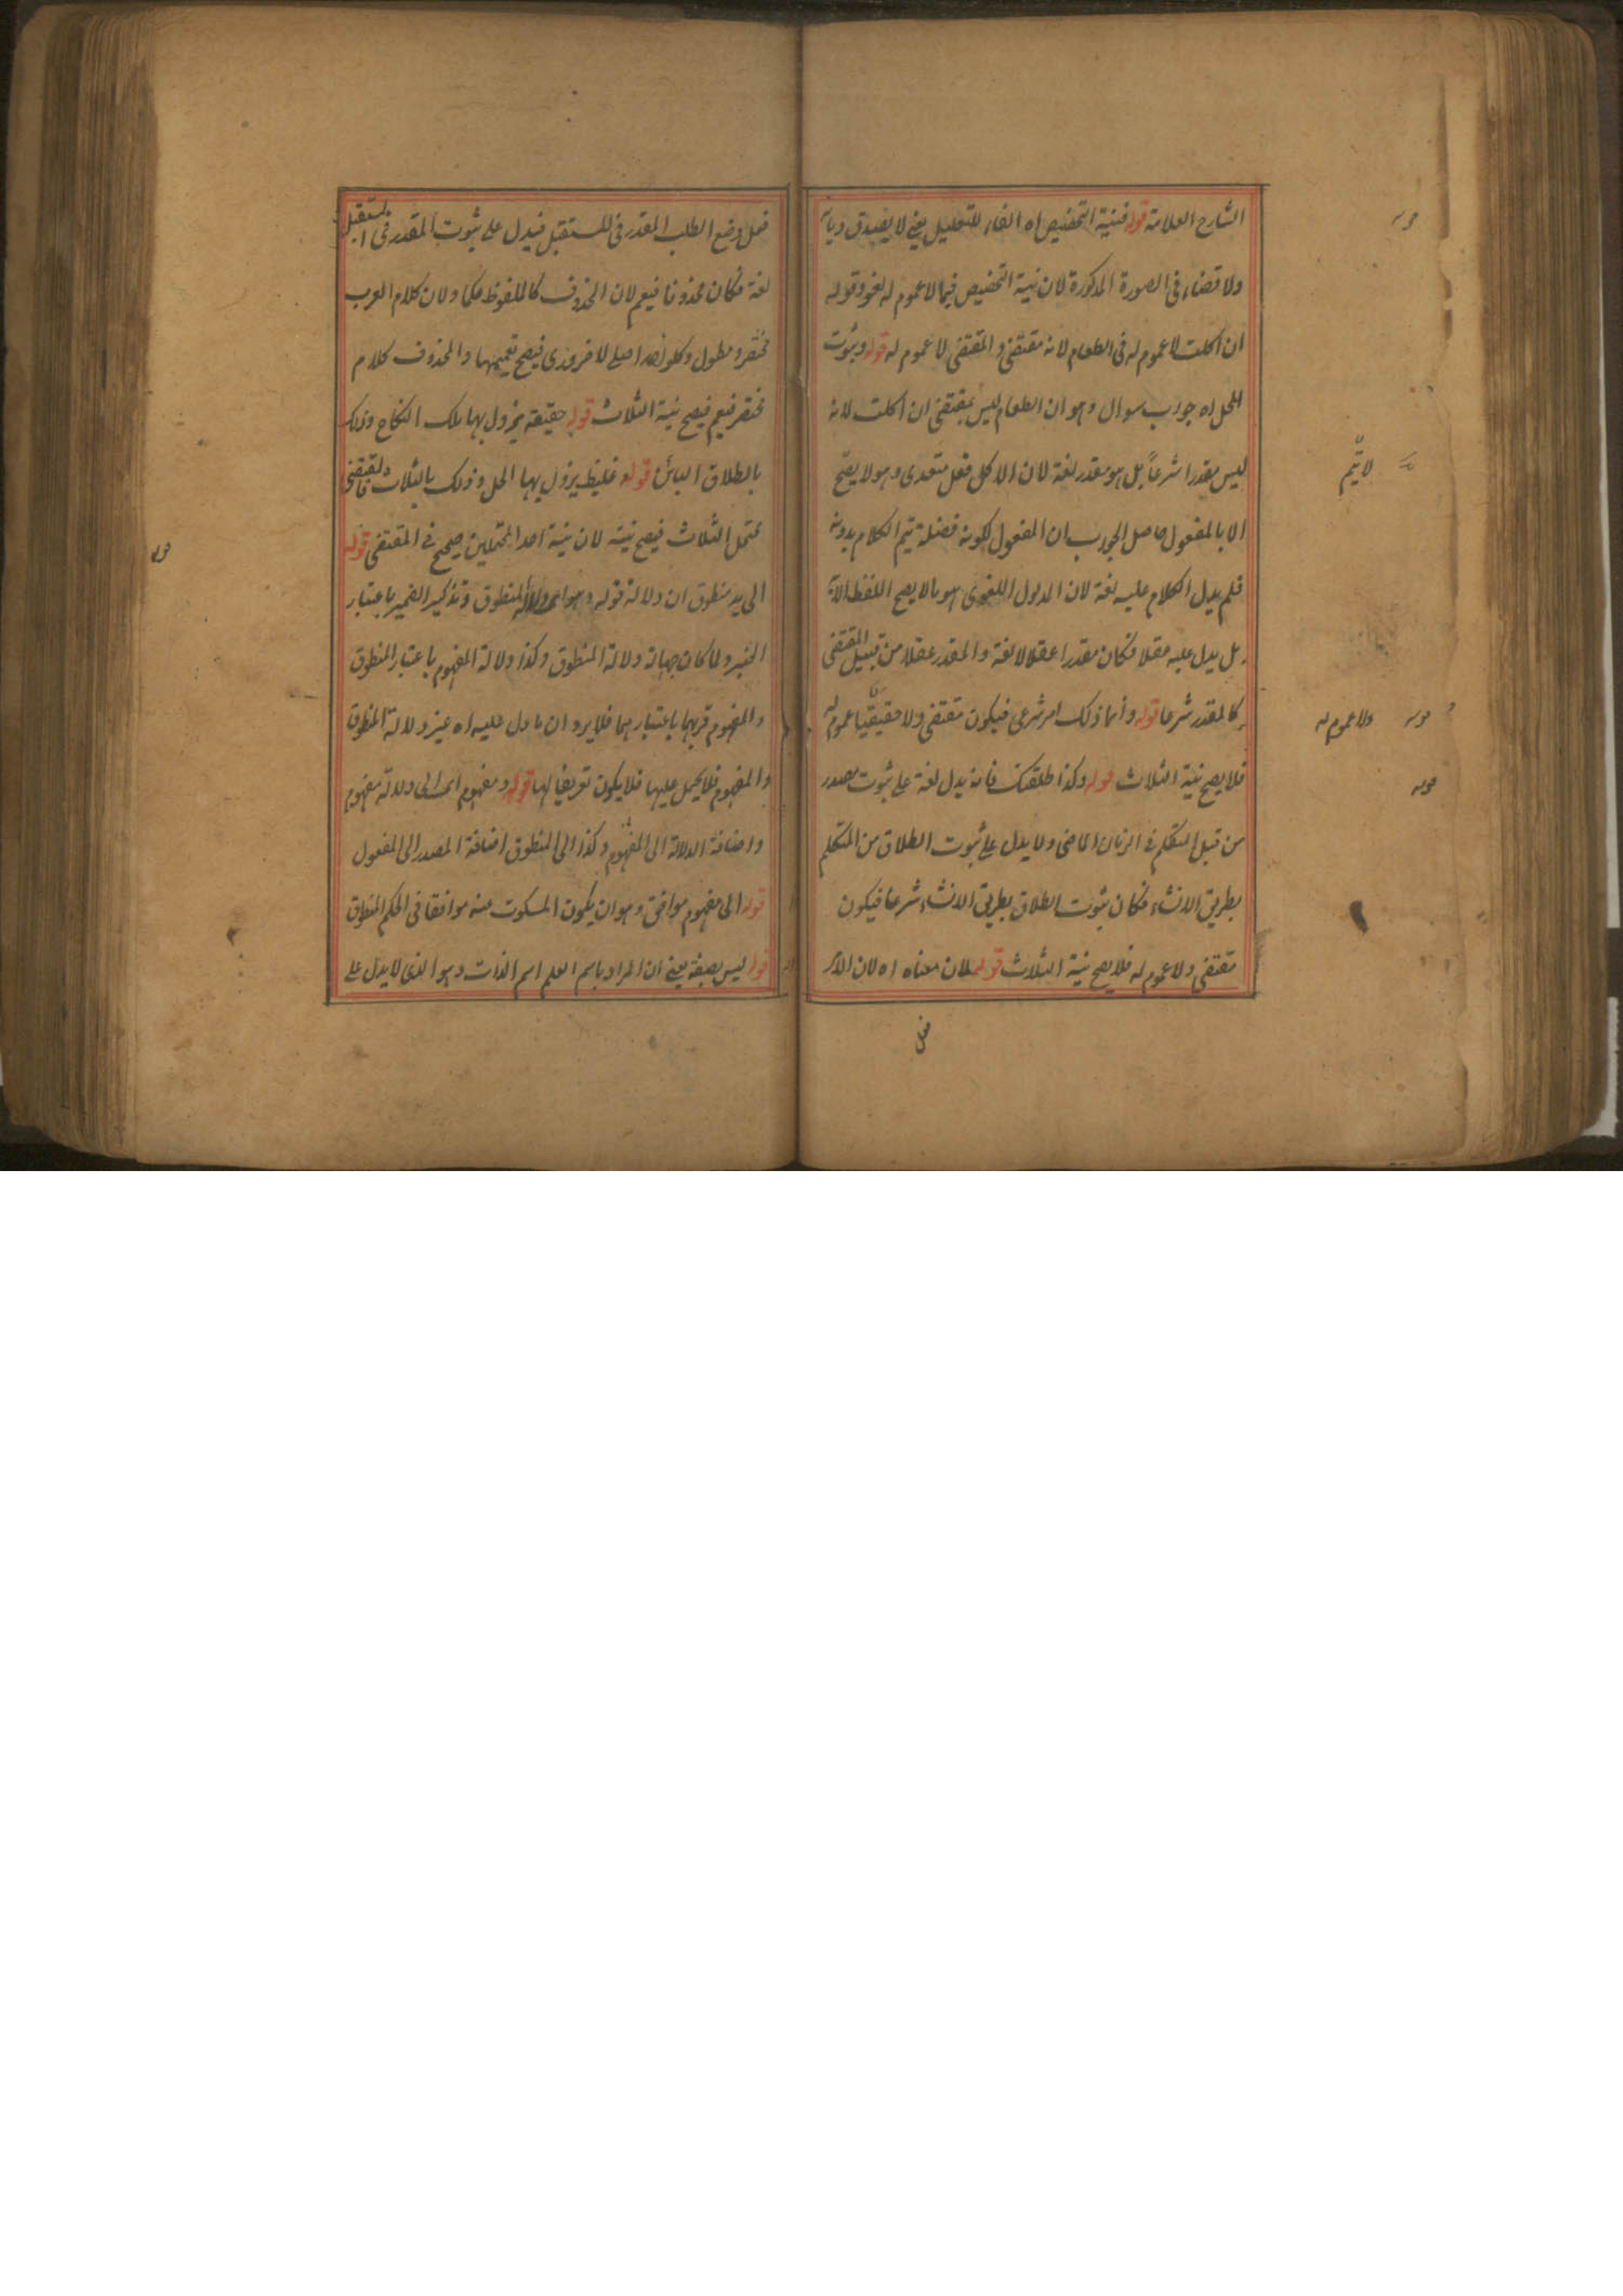 الشارح العلامة قوله فنية التخصيص اه الفاء للتعليل يعني لا يصدق ديانة
ولا قضاء في الصورة المذكورة لان نية التخصيص فيما لا عموم له لغو وقوله
ان اكلت لا عموم له في الطعام لانه مقتضى والمقتضى لا عموم له قوله وثبوت
المحل اه جواب سوال وهو ان الطعام ليس بمقتضى ان اكلت لانه
ليس مقدرا شرعاً بل هو مقدر لغة لان الاكل فعل متعدى وهو لا يصح
الا بالمفعول حاصل الجواب ان المفعول لكونه فضلة يتم الكلام بدونه
فلم يدل الكلام عليه لغة لان المدلول اللغوى هو مالا يصح اللفظ الا به
بل يدل عليه عقلا فكان مقدرا عقلا لا لغة والمقدر عقلا من قبيل المقتضى
كالمقدر شرعا قوله وأنما ذلك امر شرعى فيكون مقتضى ولا حقيقيا عموم له
فلا يصح نية الثلاث قوله وكذا طلقتك فانه يدل لغة على ثبوت مصدر
من قبل المتكلم في الزمان الماضى ولا يدل على ثبوت الطلاق من المتكلم
بطريق الانشاء فكان ثبوت الطلاق بطريق الانشاء شرعا فيكون
مقتضى ولا عموم له فلا يصح نية الثلاث قوله لان معناه اه لان الامر
فعل
قوله
لا يتم
قوله
ولا عموم له
قوله
فعل وضع الطلب المقدر في المستقبل فيدل على ثبوت المقدر في المستقبل
لغة فكان محذوفا فيعم لان المحذوف كالملفوظ حكما ولان كلام العرب
مختصر ومطول وكلواحد اصلي لا ضرورى فيصح تعميمها والمحذوف كلام
مختصر فيعم فيصح نية الثلاث قوله حقيقة يزول بها ملك النكاح وذلك
بالطلاق البائن قوله غليظ يزول بها الحل وذلك بالثلاث والمقتضى
محتمل الثلاث فيصح نيته لان نية احد المحتملين صحيح في المقتضى قوله
الى يد منطوق ان دلالة قوله وهو اى دلالة المنطوق وتذكير الضمير باعتبار
الخبر ولما كان جهات دلالة المنطوق وكذا دلالة المفهوم باعتبار المنطوق
والمفهوم قربهما باعتبارهما فلا يرد ان ما دل عليه اه غير دلالة المنطوق
والمفهوم فلا يحمل عليها فلا يكون تعريفا لها قوله ومفهوم اى الى دلالة مفهوم
واضافة الدلالة الى المفهوم وكذا الى المنطوق اضافة المصدر الى المفعول
قوله الى مفهوم موافق وهو ان يكون المسكوت عنه موافقا في الحكم المنطوق
قوله ليس بصفة يعنى ان المراد باسم العلم اسم الذات وهو الذى لا يدل على
قوله